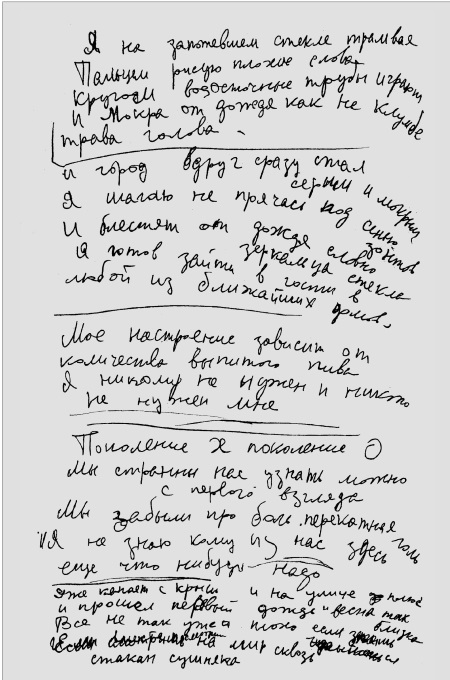 Я на запотевшем стекле трамвая
Пальцем рисую плохие слова
Кругом водосточные трубы играют
И мокра от дождя как на клумбе
трава голова.
и город вдруг сразу стал
серым и мокрым
Я шагаю не прячась под сенью зонтов
И блестят от дождя словно
зеркальца стекла
Я готов зайти в гости в
любой из ближайших домов.
Мое настроение зависит от
количества выпитого пива
Я никому не нужен и никто
не нужен мне
Поколение Х поколение 0
Мы странны нас узнать можно
с первого взгляда
Мы забыли про боль перекатная голь
Я не знаю кому из нас здесь
еще что нибудь надо
Уже капает с крыш и на улице плюс
и прошел первый дождь и весна так близко
Все не так уж и плохо если
Если смотреть на мир сквозь
стакан сушняка